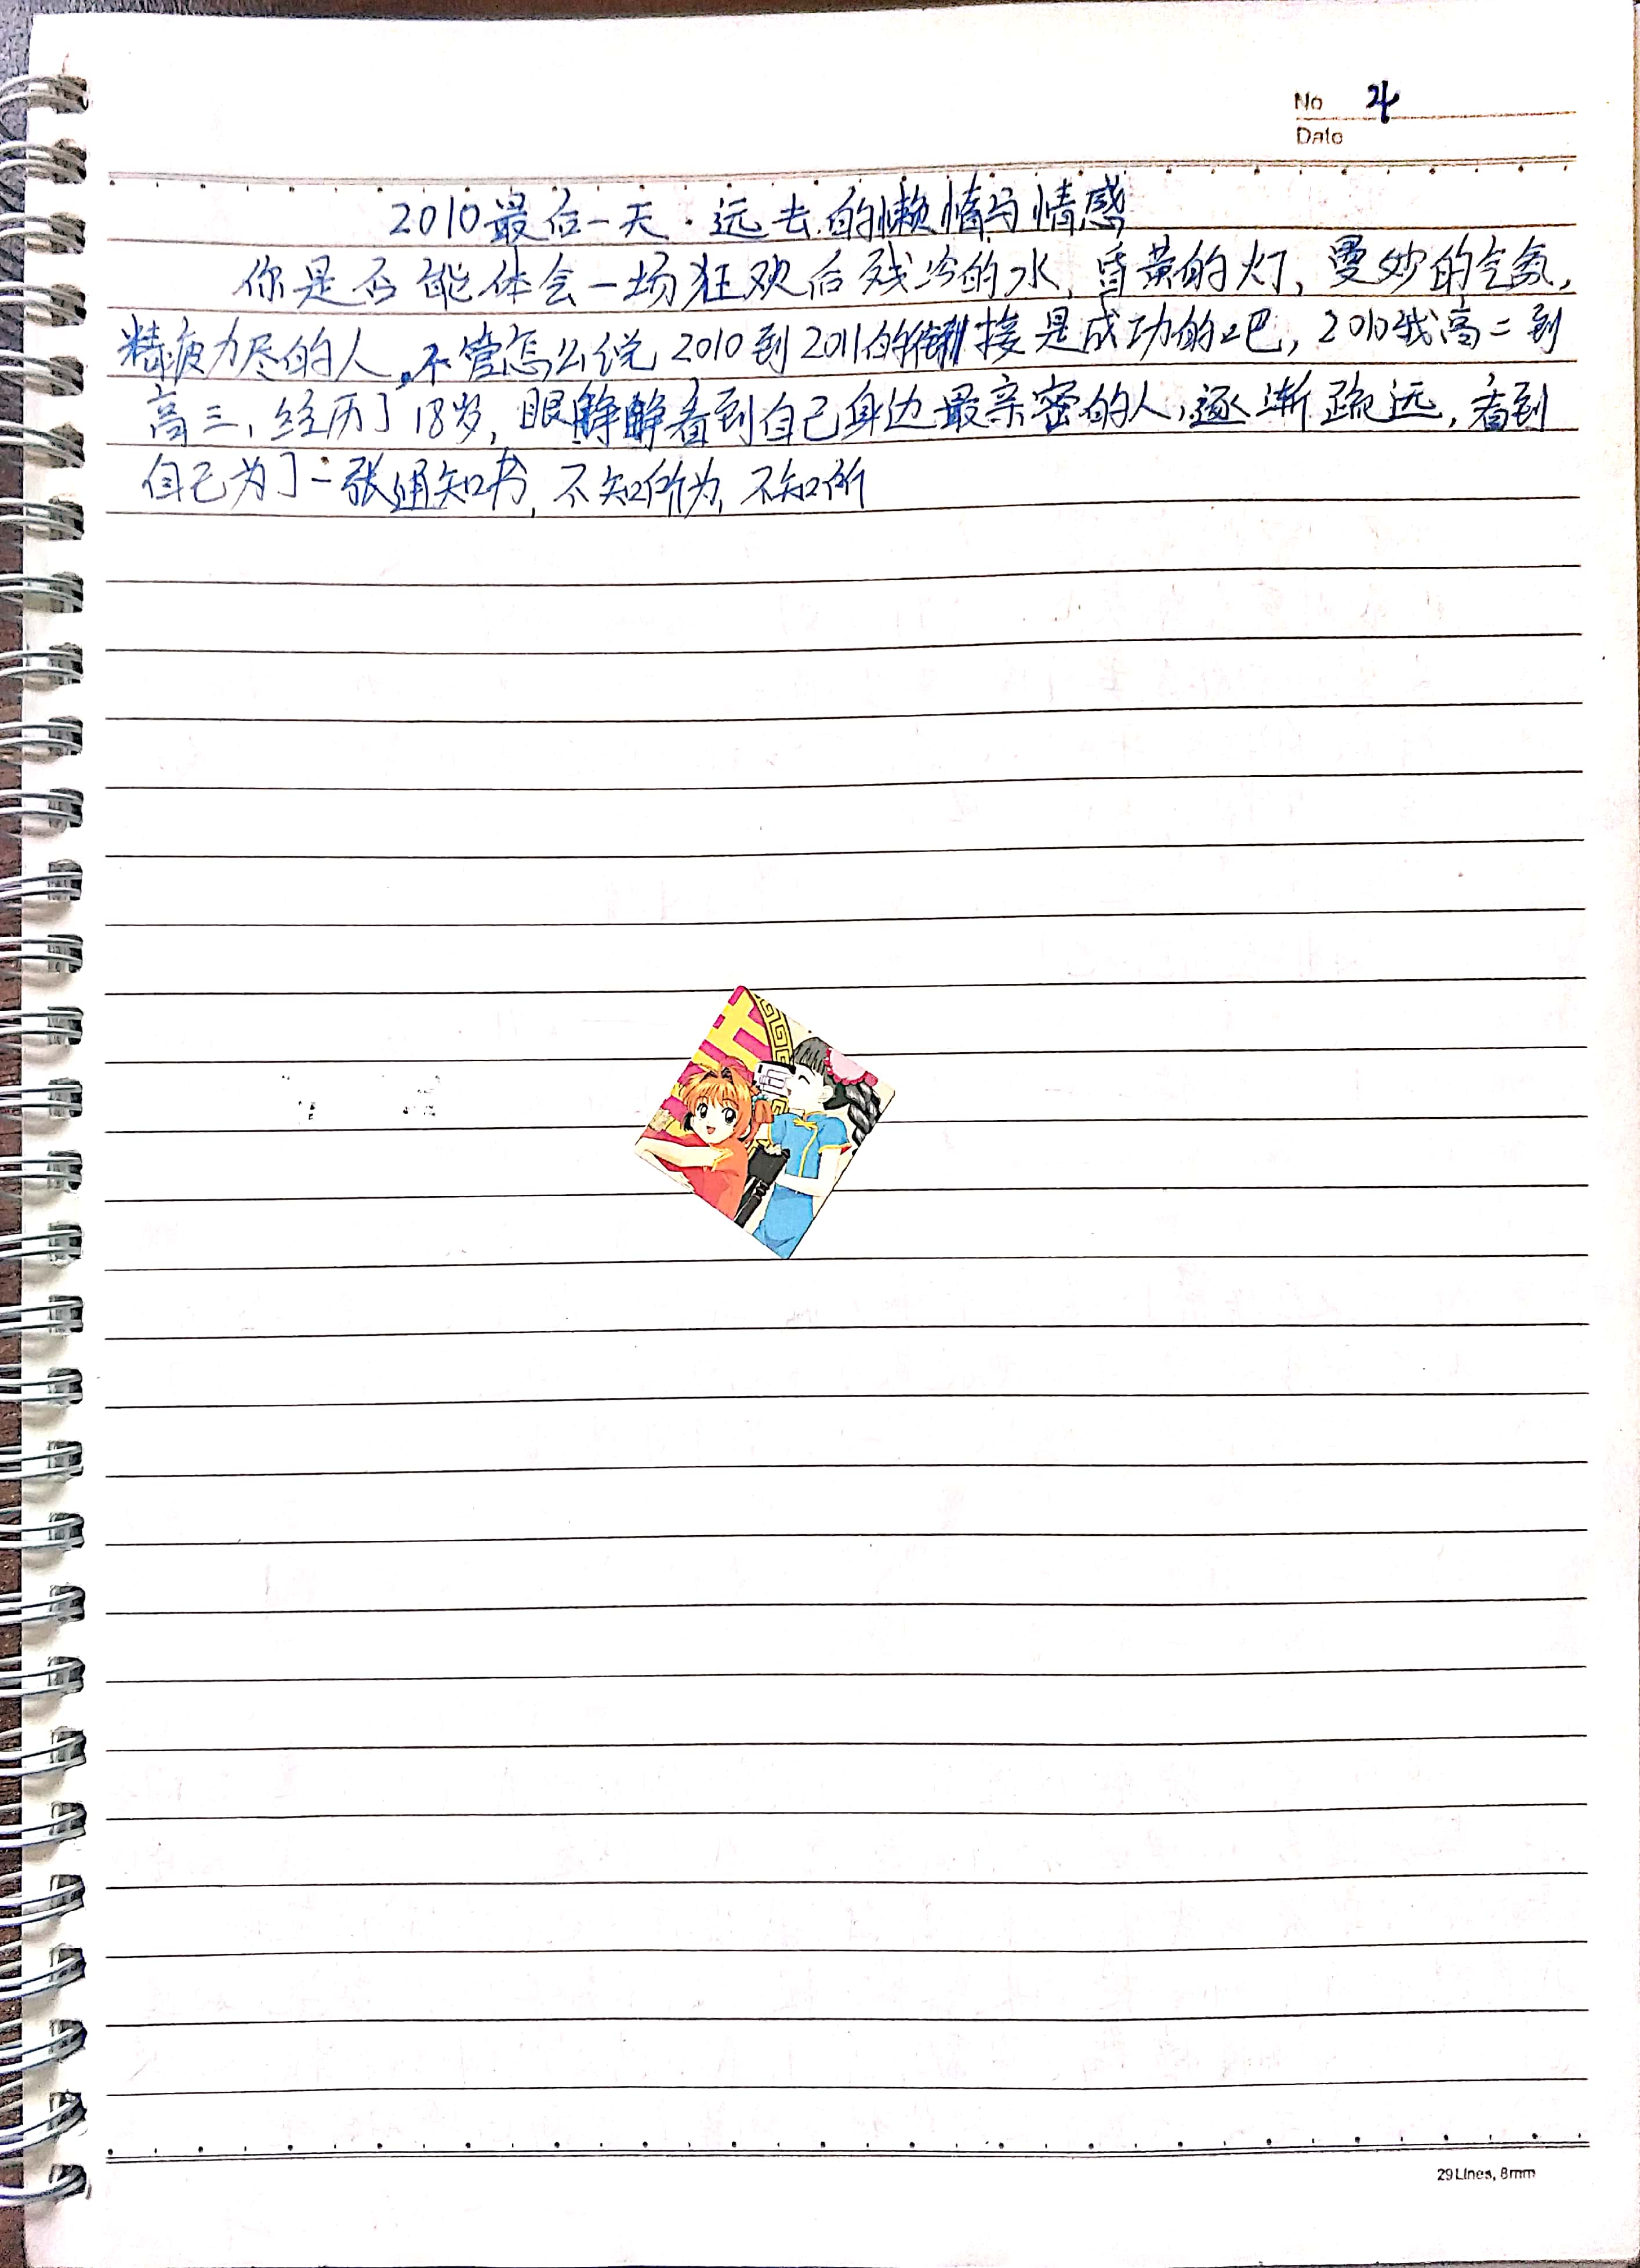 No 4
Date
2010最后一天·远去的懒惰与情感
你是否能体会一场狂欢后残冷的水,昏黄的灯,曼妙的气氛,
精疲力尽的人。不管怎么说2010到2011的衔接是成功的吧,2010我高二到
高三,经历了18岁,眼睁睁看到自己身边最亲密的人,逐渐疏远,看到
自己为了一张通知书,不知所为,不知所
29Lines, 8mm